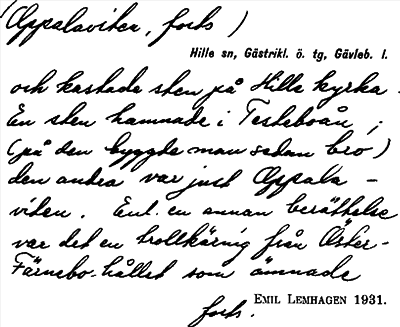 (Oppalaviten, forts)
Hille sn, Gästrikl. ö. tg, Gävleb. l.
och kastade sten på Hille kyrka.
En sten hamnade i Testeboån;
(på den byggde man sedan bro)
den andra var just Oppala-
viten. Enl. en annan berättelse
var det en trollkäring från Öster-
Färnebo-hållet som ämnade
forts.
EMIL LEMHAGEN 1931.